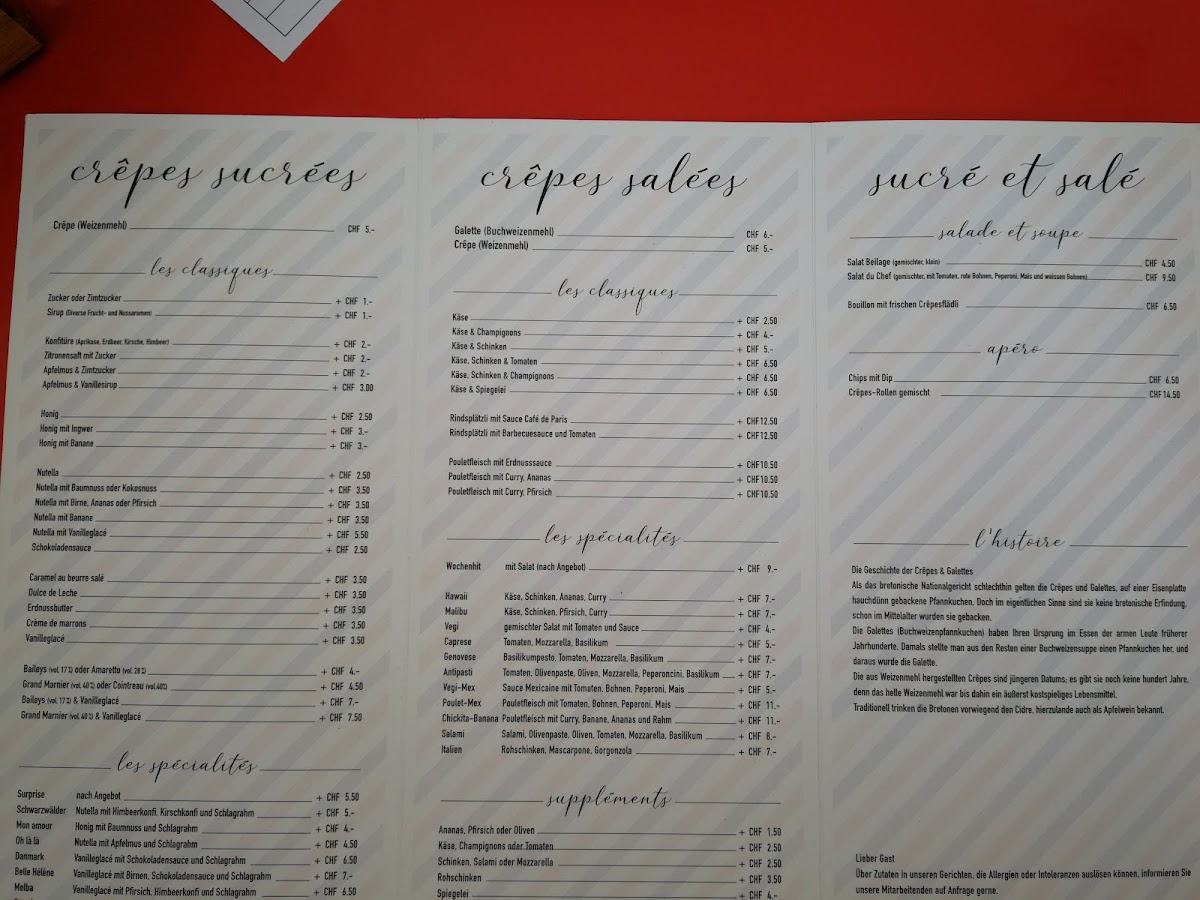 crêpes sucrées
Crêpe (Weizenmehl) CHF 5.-
les classiques
Zucker oder Zimtzucker + CHF 1.-
Sirup (Diverse Frucht- und Nussaromen) + CHF 1.-
Konfitüre (Aprikose, Erdbeer, Kirsche, Himbeer) + CHF 2.-
Zitronensaft mit Zucker + CHF 2.-
Apfelmus & Zimtzucker + CHF 2.-
Apfelmus & Vanillesirup + CHF 3.00
Honig + CHF 2.50
Honig mit Ingwer + CHF 3.-
Honig mit Banane + CHF 3.-
Nutella + CHF 2.50
Nutella mit Baumnuss oder Kokosnuss + CHF 3.50
Nutella mit Birne, Ananas oder Pfirsich + CHF 3.50
Nutella mit Banane + CHF 3.50
Nutella mit Vanilleglacé + CHF 5.50
Schokoladensauce + CHF 2.50
Caramel au beurre salé + CHF 3.50
Dulce de Leche + CHF 3.50
Erdnussbutter + CHF 3.50
Crème de marrons + CHF 3.50
Vanilleglacé + CHF 3.50
Baileys (vol. 17%) oder Amaretto (vol. 28%) + CHF 4.-
Grand Marnier (vol. 40%) oder Cointreau (vol.40%) + CHF 4.50
Baileys (vol. 17%) & Vanilleglacé + CHF 7.-
Grand Marnier (vol. 40%) & Vanilleglacé + CHF 7.50
les spécialités
Surprise nach Angebot + CHF 5.50
Schwarzwälder Nutella mit Himbeerkonfi, Kirschkonfi und Schlagrahm + CHF 5.-
Mon amour Honig mit Baumnuss und Schlagrahm + CHF 4.-
Oh là là Nutella mit Apfelmus und Schlagrahm + CHF 4.50
Danmark Vanilleglacé mit Schokoladensauce und Schlagrahm + CHF 6.50
Belle Hélène Vanilleglacé mit Birnen, Schokoladensauce und Schlagrahm + CHF 7.-
Melba Vanilleglacé mit Pfirsich, Himbeerkonfi und Schlagrahm + CHF 6.50
crêpes salées
Galette (Buchweizenmehl) CHF 6.-
Crêpe (Weizenmehl) CHF 5.-
les classiques
Käse + CHF 2.50
Käse & Champignons + CHF 4.-
Käse & Schinken + CHF 5.-
Käse, Schinken & Tomaten + CHF 6.50
Käse, Schinken & Champignons + CHF 6.50
Käse & Spiegelei + CHF 6.50
Rindsplätzli mit Sauce Café de Paris + CHF12.50
Rindsplätzli mit Barbecuesauce und Tomaten + CHF12.50
Pouletfleisch mit Erdnusssauce + CHF10.50
Pouletfleisch mit Curry, Ananas + CHF10.50
Pouletfleisch mit Curry, Pfirsich + CHF10.50
les spécialités
Wochenhit mit Salat (nach Angebot) + CHF 9.-
Hawaii Käse, Schinken, Ananas, Curry + CHF 7.-
Malibu Käse, Schinken, Pfirsich, Curry + CHF 7.-
Vegi gemischter Salat mit Tomaten und Sauce + CHF 4.-
Caprese Tomaten, Mozzarella, Basilikum + CHF 5.-
Genovese Basilikumpesto, Tomaten, Mozzarella, Basilikum + CHF 7.-
Antipasti Tomaten, Olivenpaste, Oliven, Mozzarella, Peperoncini, Basilikum + CHF 7.-
Vegi-Mex Sauce Mexicaine mit Tomaten, Bohnen, Peperoni, Mais + CHF 5.-
Poulet-Mex Pouletfleisch mit Tomaten, Bohnen, Peperoni, Mais + CHF 11.-
Chickita-Banana Pouletfleisch mit Curry, Banane, Ananas und Rahm + CHF 11.-
Salami Salami, Olivenpaste, Oliven, Tomaten, Mozzarella, Basilikum + CHF 8.-
Italien Rohschinken, Mascarpone, Gorgonzola + CHF 7.-
suppléments
Ananas, Pfirsich oder Oliven + CHF 1.50
Käse, Champignons oder Tomaten + CHF 2.50
Schinken, Salami oder Mozzarella + CHF 2.50
Rohschinken + CHF 3.50
Spiegelei + CHF 4.-
sucré et salé
salade et soupe
Salat Beilage (gemischter, klein) CHF 4.50
Salat du Chef (gemischter, mit Tomaten, rote Bohnen, Peperoni, Mais und weissen Bohnen) CHF 9.50
Bouillon mit frischen Crêpesflädli CHF 6.50
apéro
Chips mit Dip CHF 6.50
Crêpes-Rollen gemischt CHF14.50
l'histoire
Die Geschichte der Crêpes & Galettes
Als das bretonische Nationalgericht schlechthin gelten die Crêpes und Galettes, auf einer Eisenplatte
hauchdünn gebackene Pfannkuchen. Doch im eigentlichen Sinne sind sie keine bretonische Erfindung,
schon im Mittelalter wurden sie gebacken.
Die Galettes (Buchweizenpfannkuchen) haben Ihren Ursprung im Essen der armen Leute früherer
Jahrhunderte. Damals stellte man aus den Resten einer Buchweizensuppe einen Pfannkuchen her, und
daraus wurde die Galette.
Die aus Weizenmehl hergestellten Crêpes sind jüngeren Datums; es gibt sie noch keine hundert Jahre,
denn das helle Weizenmehl war bis dahin ein äußerst kostspieliges Lebensmittel.
Traditionell trinken die Bretonen vorwiegend den Cidre, hierzulande auch als Apfelwein bekannt.
Lieber Gast
Über Zutaten in unseren Gerichten, die Allergien oder Intoleranzen auslösen können, informieren Sie
unsere Mitarbeitenden auf Anfrage gerne.